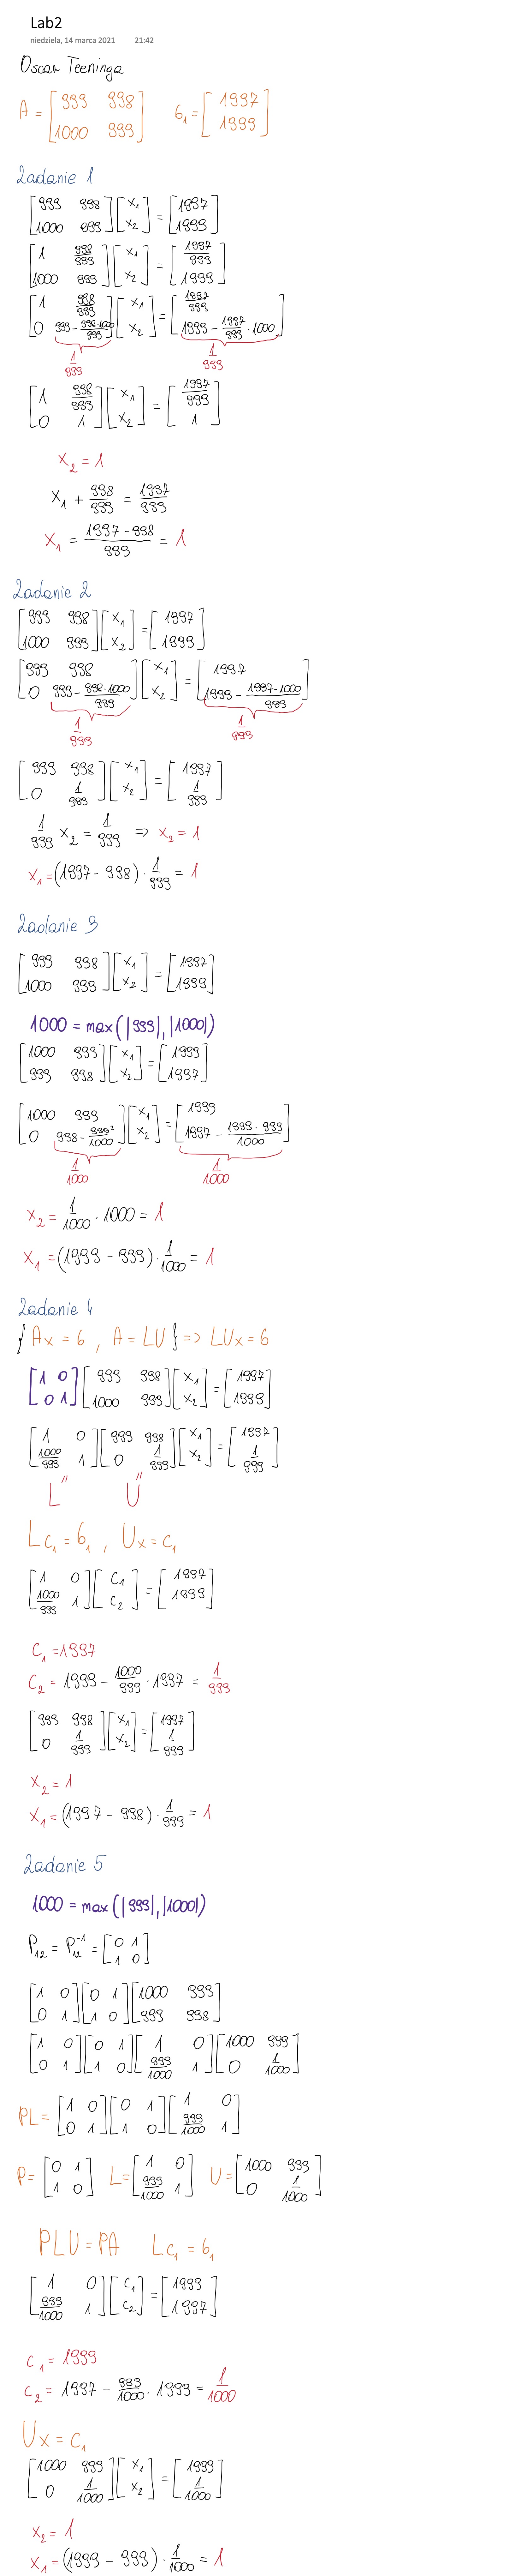 Lab2
niedziela, 14 marca 2021 21:42
Oscar Teeninga
A = [ 999 998 ; 1000 999 ] b₁ = [ 1997 ; 1999 ]
Zadanie 1
[ 999 998 ; 1000 999 ] [ x₁ ; x₂ ] = [ 1997 ; 1999 ]
[ 1 998/999 ; 1000 999 ] [ x₁ ; x₂ ] = [ 1997/999 ; 1999 ]
[ 1 998/999 ; 0 999 - 998·1000/999 ] [ x₁ ; x₂ ] = [ 1997/999 ; 1999 - 1997/999 · 1000 ]
1/999 1/999
[ 1 998/999 ; 0 1 ] [ x₁ ; x₂ ] = [ 1997/999 ; 1 ]
x₂ = 1
x₁ + 998/999 = 1997/999
x₁ = (1997 - 998)/999 = 1
Zadanie 2
[ 999 998 ; 1000 999 ] [ x₁ ; x₂ ] = [ 1997 ; 1999 ]
[ 999 998 ; 0 999 - 998·1000/999 ] [ x₁ ; x₂ ] = [ 1997 ; 1999 - 1997·1000/999 ]
1/999 1/999
[ 999 998 ; 0 1/999 ] [ x₁ ; x₂ ] = [ 1997 ; 1/999 ]
1/999 x₂ = 1/999 => x₂ = 1
x₁ = (1997 - 998) · 1/999 = 1
Zadanie 3
[ 999 998 ; 1000 999 ] [ x₁ ; x₂ ] = [ 1997 ; 1999 ]
1000 = max(|999|, |1000|)
[ 1000 999 ; 999 998 ] [ x₁ ; x₂ ] = [ 1999 ; 1997 ]
[ 1000 999 ; 0 998 - 999²/1000 ] [ x₁ ; x₂ ] = [ 1999 ; 1997 - 1999·999/1000 ]
1/1000 1/1000
x₂ = 1/1000 · 1000 = 1
x₁ = (1999 - 999) · 1/1000 = 1
Zadanie 4
{ Ax = b , A = LU } => LUx = b
[ 1 0 ; 0 1 ] [ 999 998 ; 1000 999 ] [ x₁ ; x₂ ] = [ 1997 ; 1999 ]
[ 1 0 ; 1000/999 1 ] [ 999 998 ; 0 1/999 ] [ x₁ ; x₂ ] = [ 1997 ; 1/999 ]
L U
Lc₁ = b₁ , Ux = c₁
[ 1 0 ; 1000/999 1 ] [ c₁ ; c₂ ] = [ 1997 ; 1999 ]
c₁ = 1997
c₂ = 1999 - 1000/999 · 1997 = 1/999
[ 999 998 ; 0 1/999 ] [ x₁ ; x₂ ] = [ 1997 ; 1/999 ]
x₂ = 1
x₁ = (1997 - 998) · 1/999 = 1
Zadanie 5
1000 = max(|999|, |1000|)
P₁₂ = P₁₂⁻¹ = [ 0 1 ; 1 0 ]
[ 1 0 ; 0 1 ] [ 0 1 ; 1 0 ] [ 1000 999 ; 999 998 ]
[ 1 0 ; 0 1 ] [ 0 1 ; 1 0 ] [ 1 0 ; 999/1000 1 ] [ 1000 999 ; 0 1/1000 ]
PL = [ 1 0 ; 0 1 ] [ 0 1 ; 1 0 ] [ 1 0 ; 999/1000 1 ]
P = [ 0 1 ; 1 0 ] L = [ 1 0 ; 999/1000 1 ] U = [ 1000 999 ; 0 1/1000 ]
PLU = PA Lc₁ = b₁
[ 1 0 ; 999/1000 1 ] [ c₁ ; c₂ ] = [ 1999 ; 1997 ]
c₁ = 1999
c₂ = 1997 - 999/1000 · 1999 = 1/1000
Ux = c₁
[ 1000 999 ; 0 1/1000 ] [ x₁ ; x₂ ] = [ 1999 ; 1/1000 ]
x₂ = 1
x₁ = (1999 - 999) · 1/1000 = 1